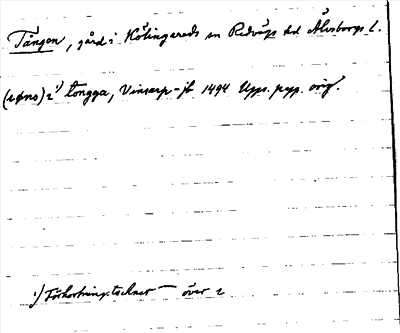 Tången, gård i Kölingareds sn Redvägs hd Älvsborgs l.
(iøns) 2¹⁾ tongga, Vinsarp-jb 1494 Upps. pgp. orig.
¹⁾ Förkortningstecknet — över 2